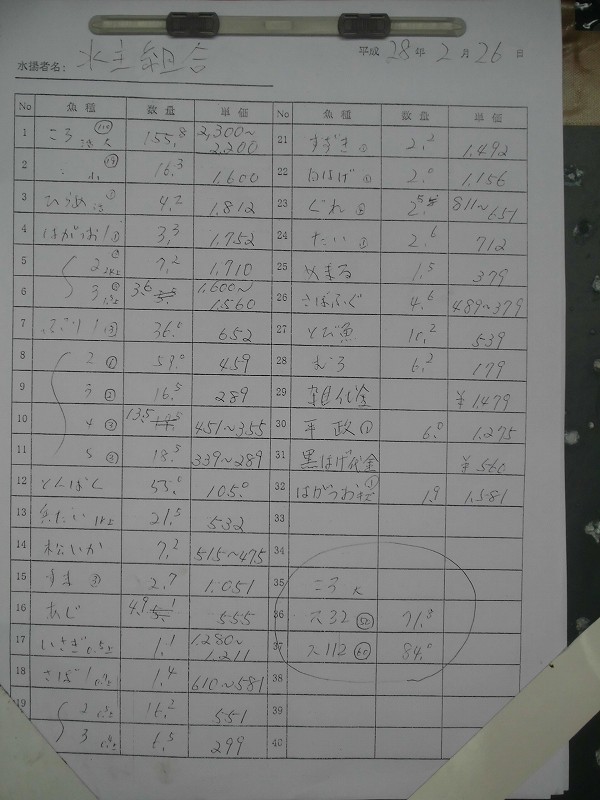 水揚者名: 水主組合
平成 28 年 2 月 26 日
No 魚種 数量 単価
1 ころ 大 155.8 2,300~2,200
2 〃 小 16.3 1,600
3 ひらめ 4.2 1,812
4 はがつお1 3.3 1,752
5 2 7.2 1,710
6 3 3.6 1,600~1,560
7 1 36.0 652
8 2 459
9 3 ② 16.5 289
10 4 ③ 13.5 451~355
11 5 18.5 339~289
12 とんぼく 55.0 105.0
13 糸たい 21.5 532
14 松いか 7.2 515~475
15 すま ③ 2.7 1,051
16 あじ 4.9 555
17 いさぎ 1.1 1,280~1,211
18 さば1 1.4 610~581
19 2 16.2 551
3 6.5 299
No 魚種 数量 単価
21 すずき 2.2 1,492
22 白はげ 2.0 1,156
23 ぐれ 811~651
24 たい 2.6 712
25 めまる 1.5 379
26 さばふぐ 4.6 489~379
27 とび魚 10.2 539
28 むろ 6.2 179
29 雑代金 ¥1,479
30 平政 6.0 1,275
31 黒はげ代金 ¥560
32 はがつお 1.9 1,581
33
34
35 ころ 大
36 ス32 52 71.8
37 ス112 60 84.0
38
39
40